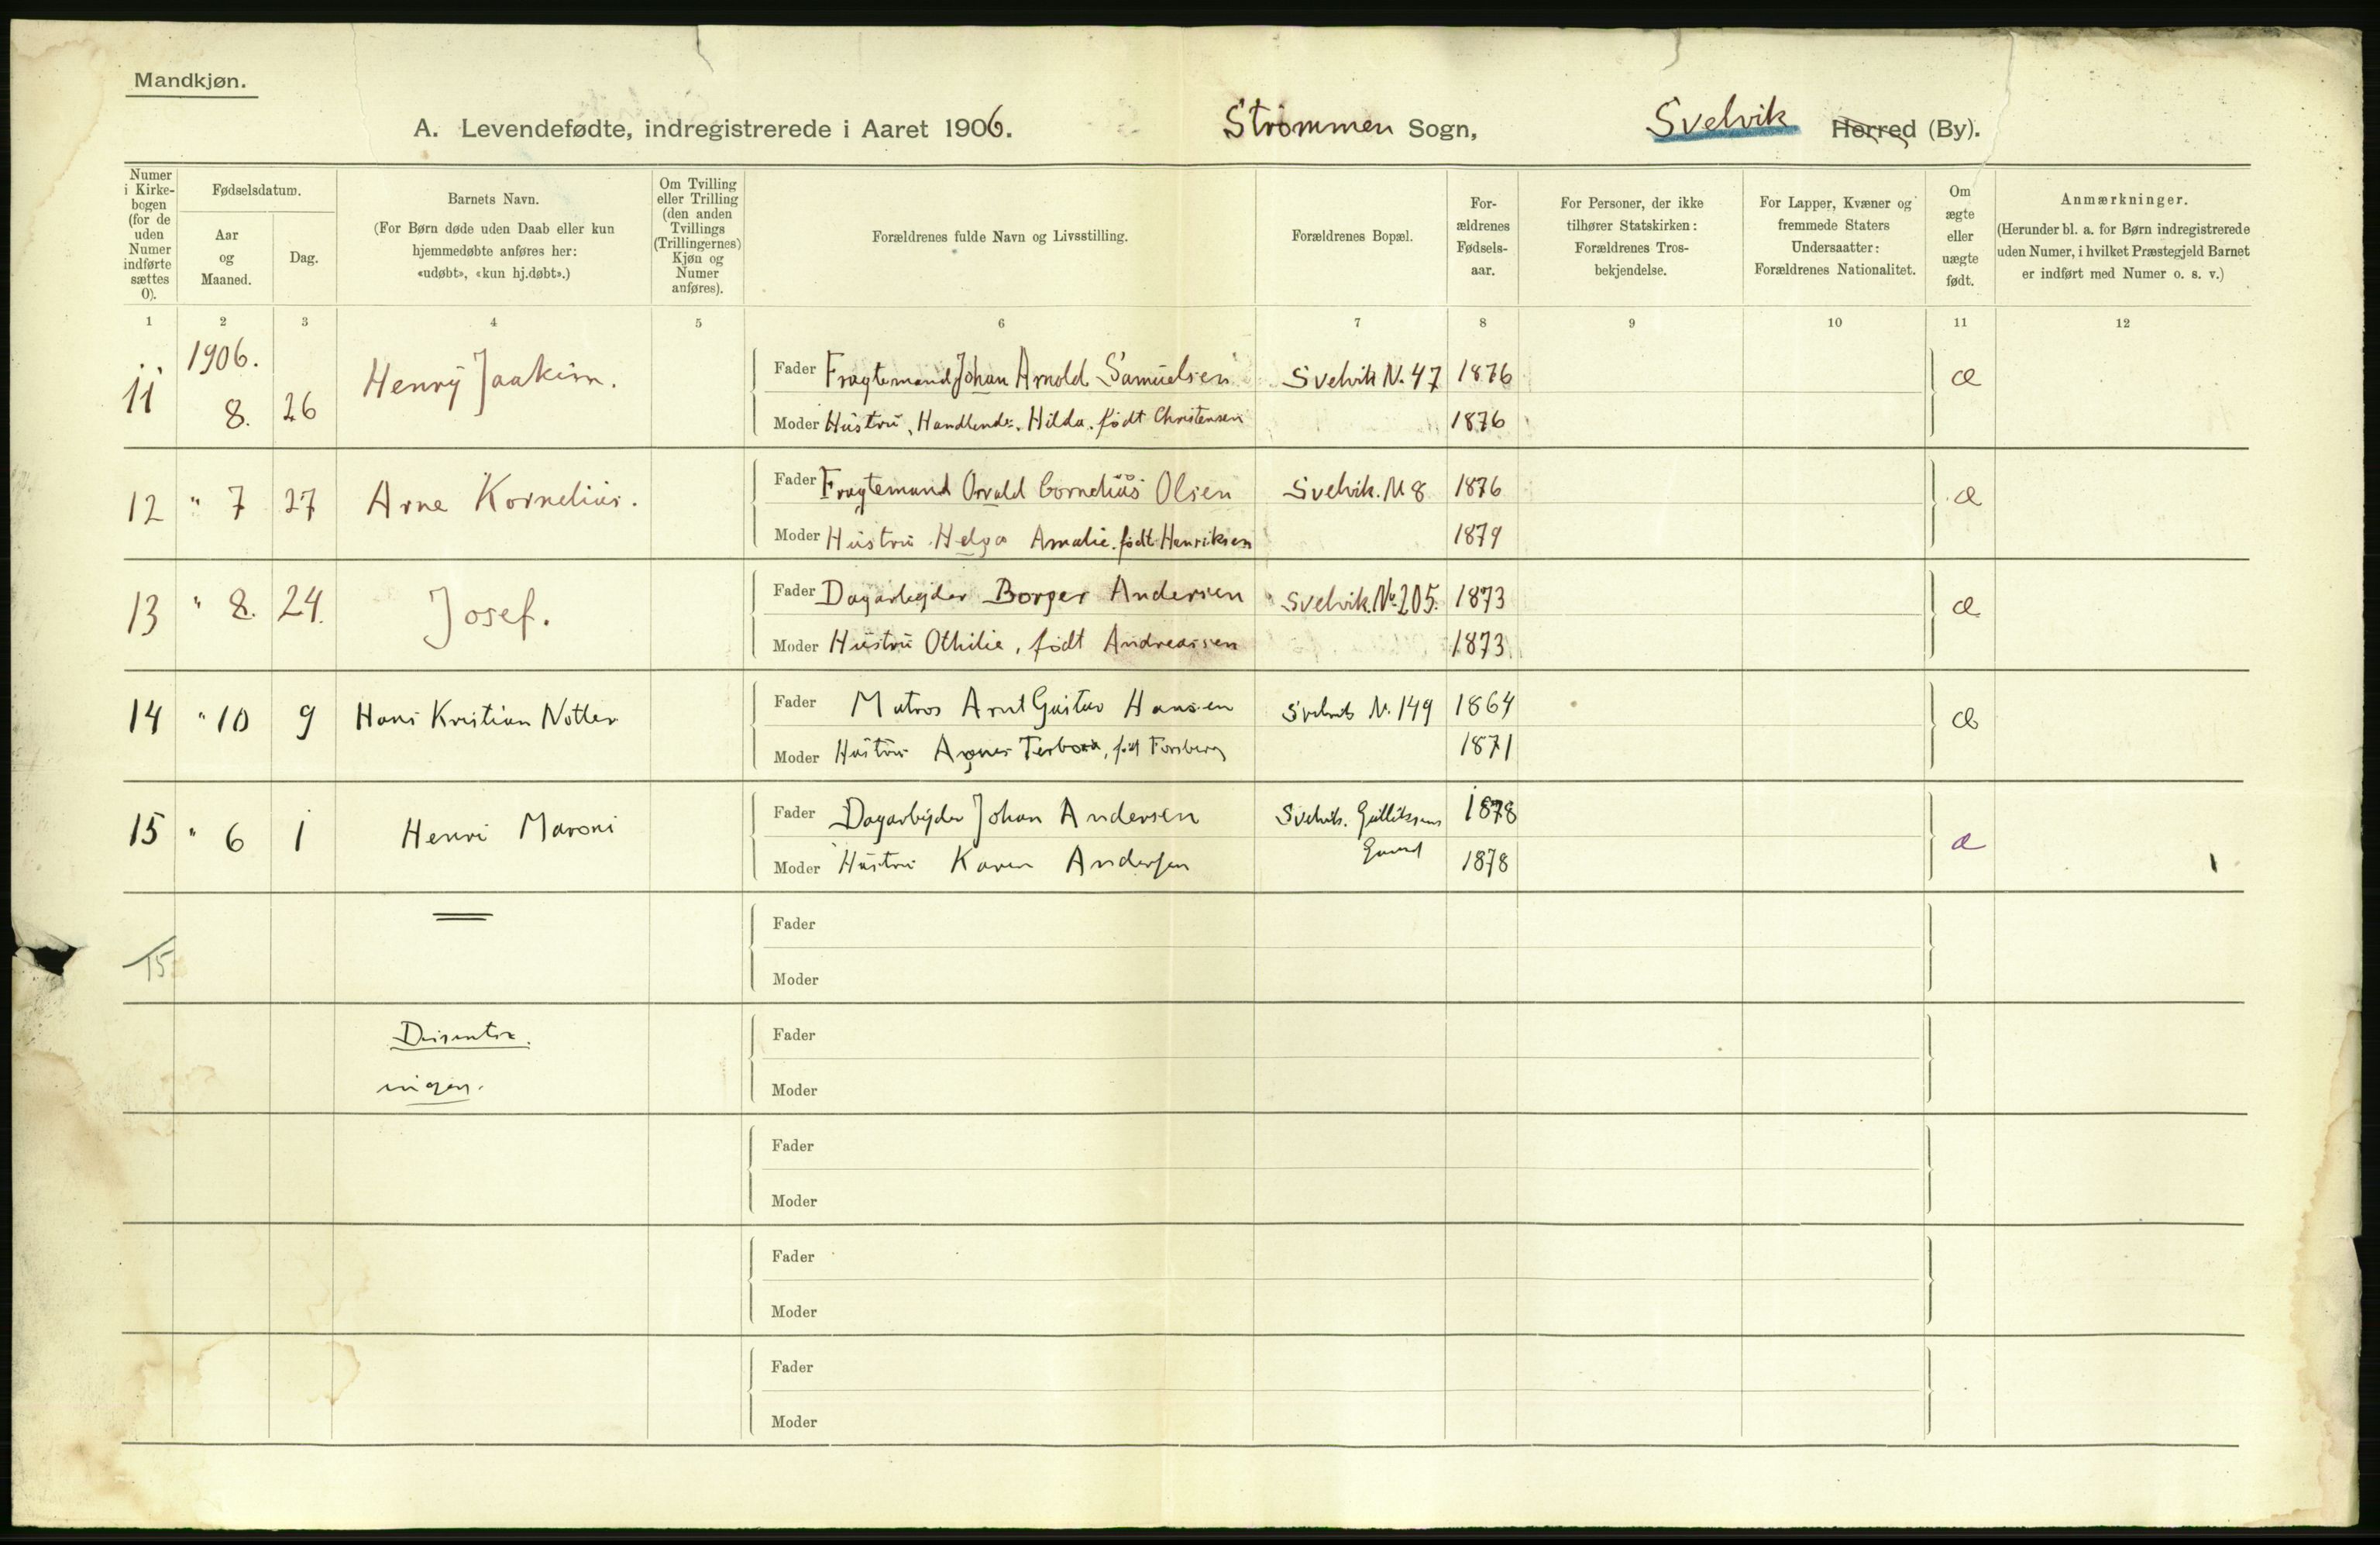 Mandkjøn.
A. Levendefødte, indregistrerede i Aaret 1906. Strømmen Sogn, Svelvik Herred (By).
Numer i Kirke-bogen (for de uden Numer indførte sættes 0).
Fødselsdatum.
Aar og Maaned.
Dag.
Barnets Navn.
(For Børn døde uden Daab eller kun hjemmedøbte anføres her: «udøbt», «kun hj.døbt».)
Om Tvilling eller Trilling (den anden Tvillings (Trillingernes) Kjøn og Numer anføres).
Forældrenes fulde Navn og Livsstilling.
Forældrenes Bopæl.
For-ældrenes Fødsels-aar.
For Personer, der ikke tilhører Statskirken: Forældrenes Tros-bekjendelse.
For Lapper, Kvæner og fremmede Staters Undersaatter: Forældrenes Nationalitet.
Om ægte eller uægte født.
Anmærkninger.
(Herunder bl. a. for Børn indregistrerede uden Numer, i hvilket Præstegjeld Barnet er indført med Numer o. s. v.)
1 2 3 4 5 6 7 8 9 10 11 12
1906.
11 8. 26 Henry Joakim. Fader Fragtemand Johan Arnold Samuelsen Svelvik N. 47 1876 æ
Moder Hustru, Handlende. Hilda. født Christensen 1876
12 " 7 27 Arne Kornelius. Fader Fragtemand Osvald Cornelius Olsen Svelvik. N 8 1876 æ
Moder Hustru Helga Amalie. født Henriksen 1879
13 " 8. 24. Josef. Fader Dagarbejder Borger Andersen Svelvik. No. 205. 1873 æ
Moder Hustru Othilie, født Andreassen 1873
14 " 10 9 Hans Kristian Notler Fader Matros Arnt Gustav Hansen Svelvik N. 149 1864 æ
Moder Hustru Agnes født Forsberg 1871
15 " 6 1 Henri Maroni Fader Dagarbejder Johan Andersen Svelvik. Gulliksens 1878 æ
Grund
Moder Hustru Karen Andersen 1878
Fader
15
Moder
Dissentere. Fader
ingen. Moder
Fader
Moder
Fader
Moder
Fader
Moder